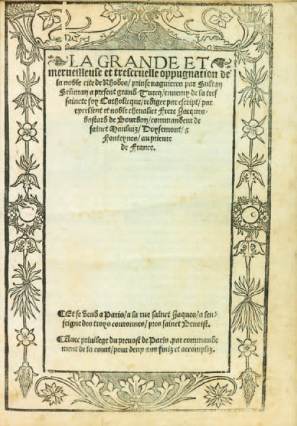 LA GRANDE ET
merveilleuse et trescruelle oppugnation de
la noble cite de Rhodes / prinse naguieres par Sultan
Seliman a present grand Turcq / ennemy de la tres
saincte foy Catholicque / redigee par escript / par
excellent et noble chevalier Frere Jacques
Bastard de Bourbon / commandeur de
sainct Maulviz / Doysemont / &
Fonteynes / au prieure
de France.
¶ Et se vend a Paris / a la rue sainct Jaques / a len-
seigne des troys couronnes / pres sainct Benoist.
¶ Avec privilege du prevost de Paris, par commande
ment de la court / pour deux ans finiz et accompliz.